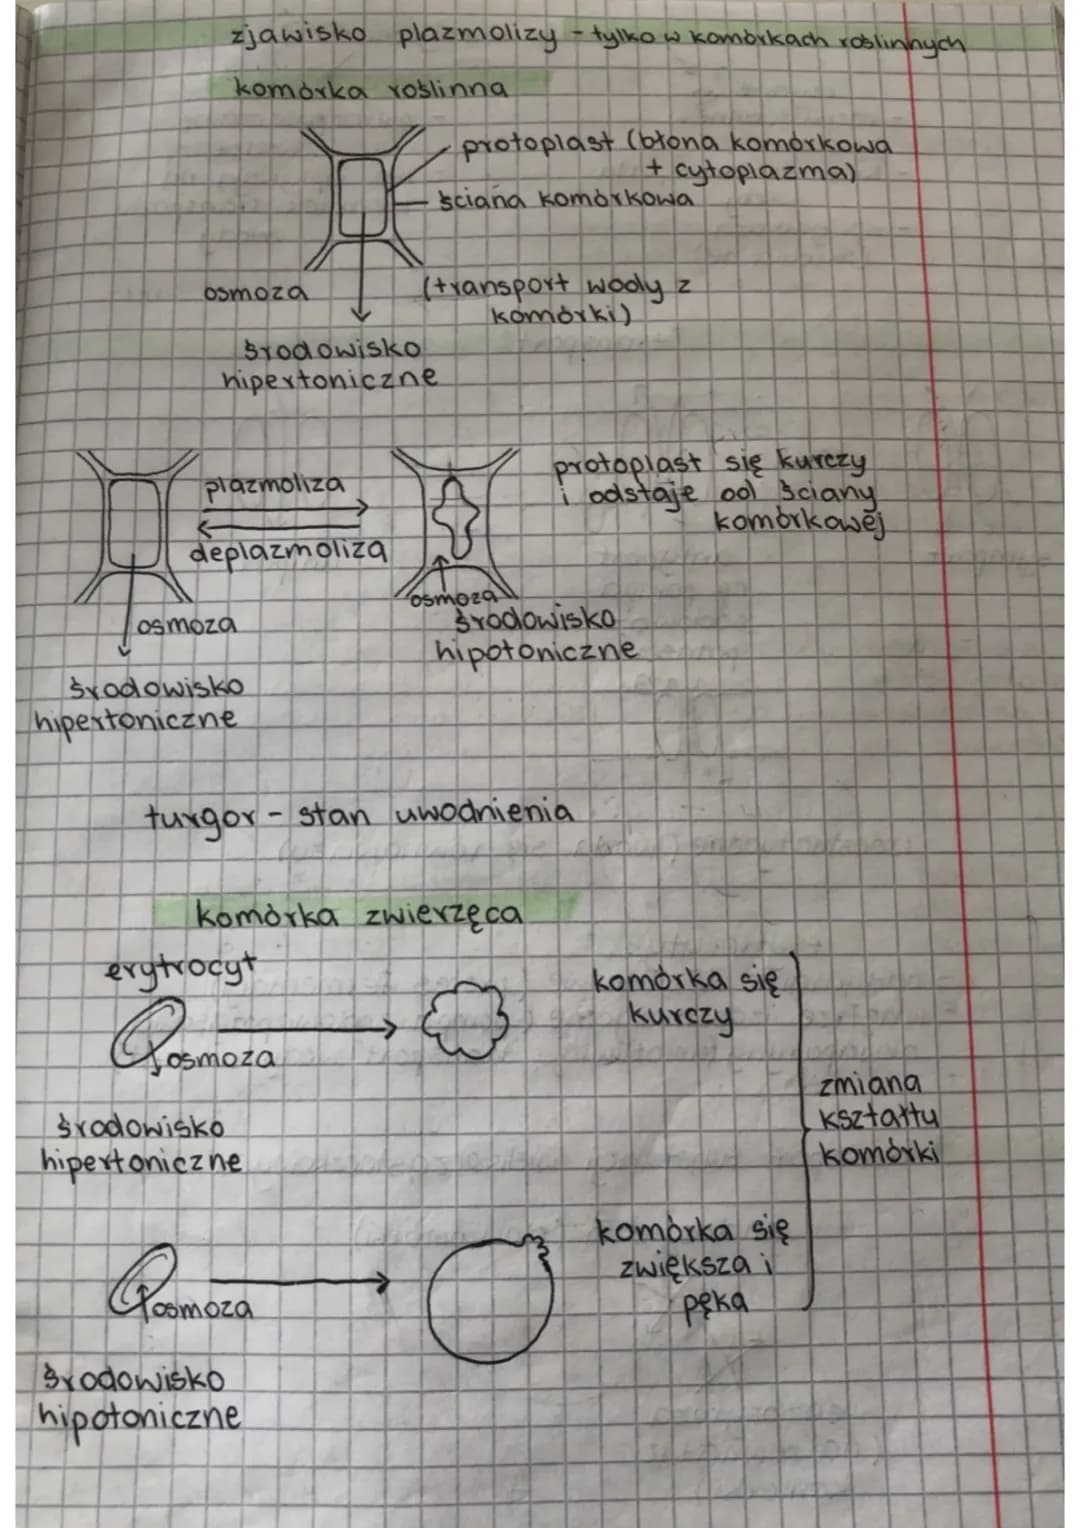 zjawisko plazmolizy - tylko w komórkach roślinnych
komórka roślinna
protoplast (błona komórkowa
+ cytoplazma)
ściana komórkowa
osmoza
(transport wody z
komórki)
środowisko
hipertoniczne
plazmoliza
deplazmoliza
protoplast się kurczy
i odstaje od ściany
komórkowej
osmoza
osmoza
środowisko
hipotoniczne
środowisko
hipertoniczne
turgor - stan uwodnienia
komórka zwierzęca
erytrocyt
osmoza
komórka się
kurczy
środowisko
hipertoniczne
zmiana
kształtu
komórki
komórka się
zwiększa i
pęka
osmoza
środowisko
hipotoniczne